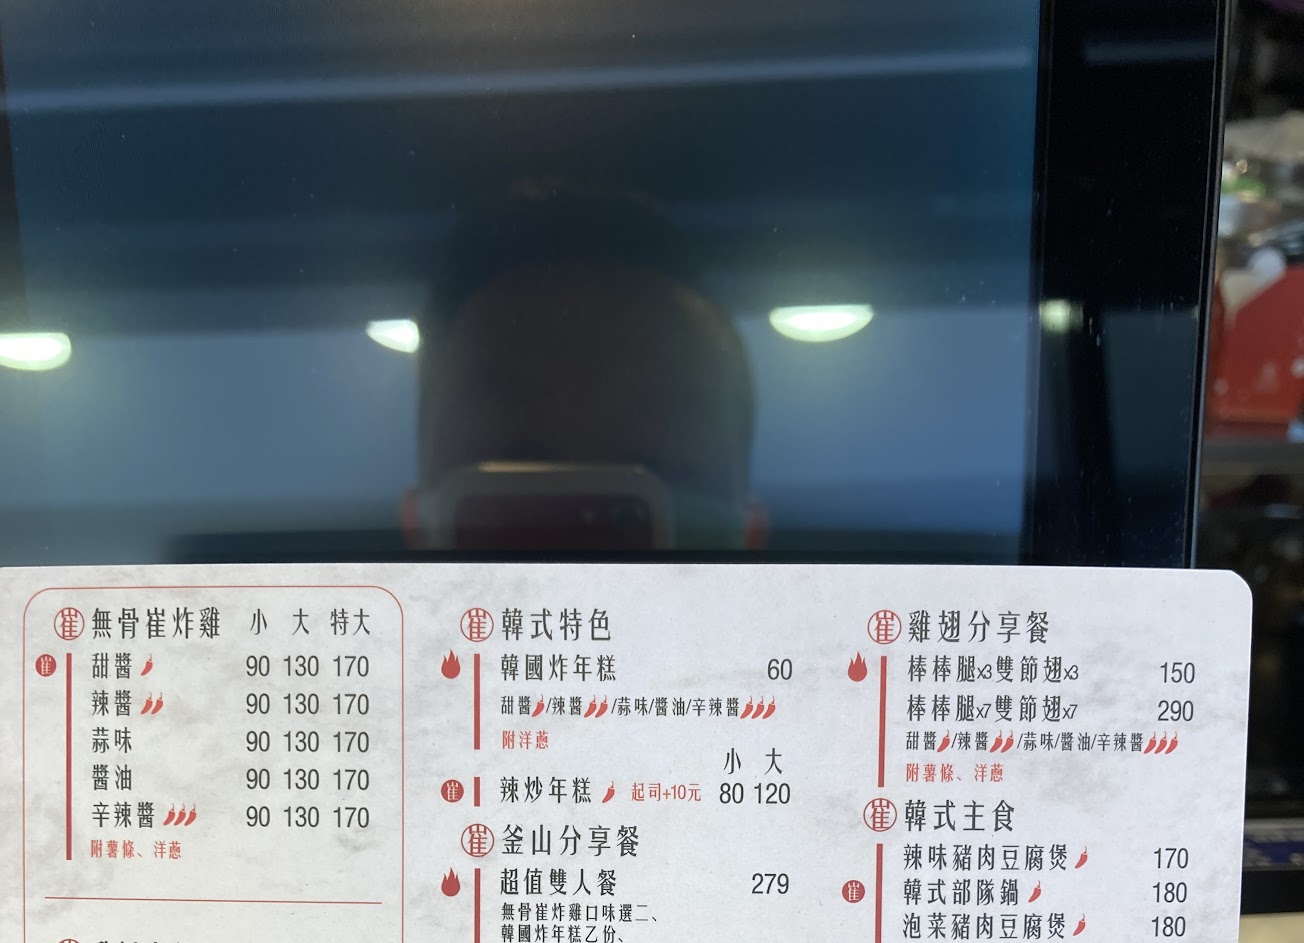 崔 無骨崔炸雞 小 大 特大
崔 甜醬 90 130 170
辣醬 90 130 170
蒜味 90 130 170
醬油 90 130 170
辛辣醬 90 130 170
附薯條、洋蔥
崔 韓式特色
韓國炸年糕 60
甜醬/辣醬/蒜味/醬油/辛辣醬
附洋蔥
小 大
崔 辣炒年糕 起司+10元 80 120
崔 釜山分享餐
超值雙人餐 279
無骨崔炸雞口味選二、
韓國炸年糕乙份、
崔 雞翅分享餐
棒棒腿x3雙節翅x3 150
棒棒腿x7雙節翅x7 290
甜醬/辣醬/蒜味/醬油/辛辣醬
附薯條、洋蔥
崔 韓式主食
辣味豬肉豆腐煲 170
崔 韓式部隊鍋 180
泡菜豬肉豆腐煲 180